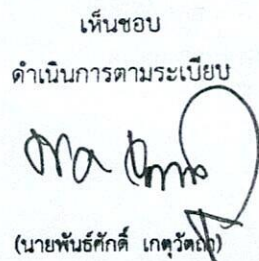 เห็นชอบ
ดำเนินการตามระเบียบ
(นายพันธ์ศักดิ์ เกตุวัตถา)